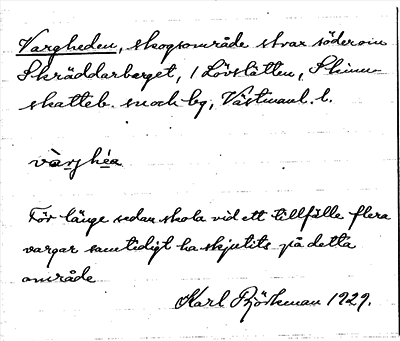 Vargheden, skogsområde strax söder om
Skräddarberget, i Lövslätten, Skinn-
skatteb. sn och bg, Västmanl. l.
vàrghéa
För länge sedan skola vid ett tillfälle flera
vargar samtidigt ha skjutits på detta
område
Karl Björkman 1929.